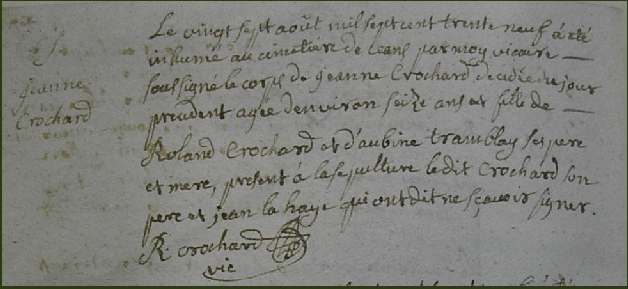 S.
jeanne
Crochard
Le vingt sept août mil sept cent trente neuf à été
inhumé au cimetiere de ceans par moy vicaire
soussigné le corps de jeanne Crochard decedée du jour
precedent agée denviron seize ans et fille de
Roland Crochard et d'aubine tramblay ses pere
et mere, present á la sepulture ledit Crochard son
pere et jean la haye qui ont dit ne sçavoir signer.
R. crochard
vic